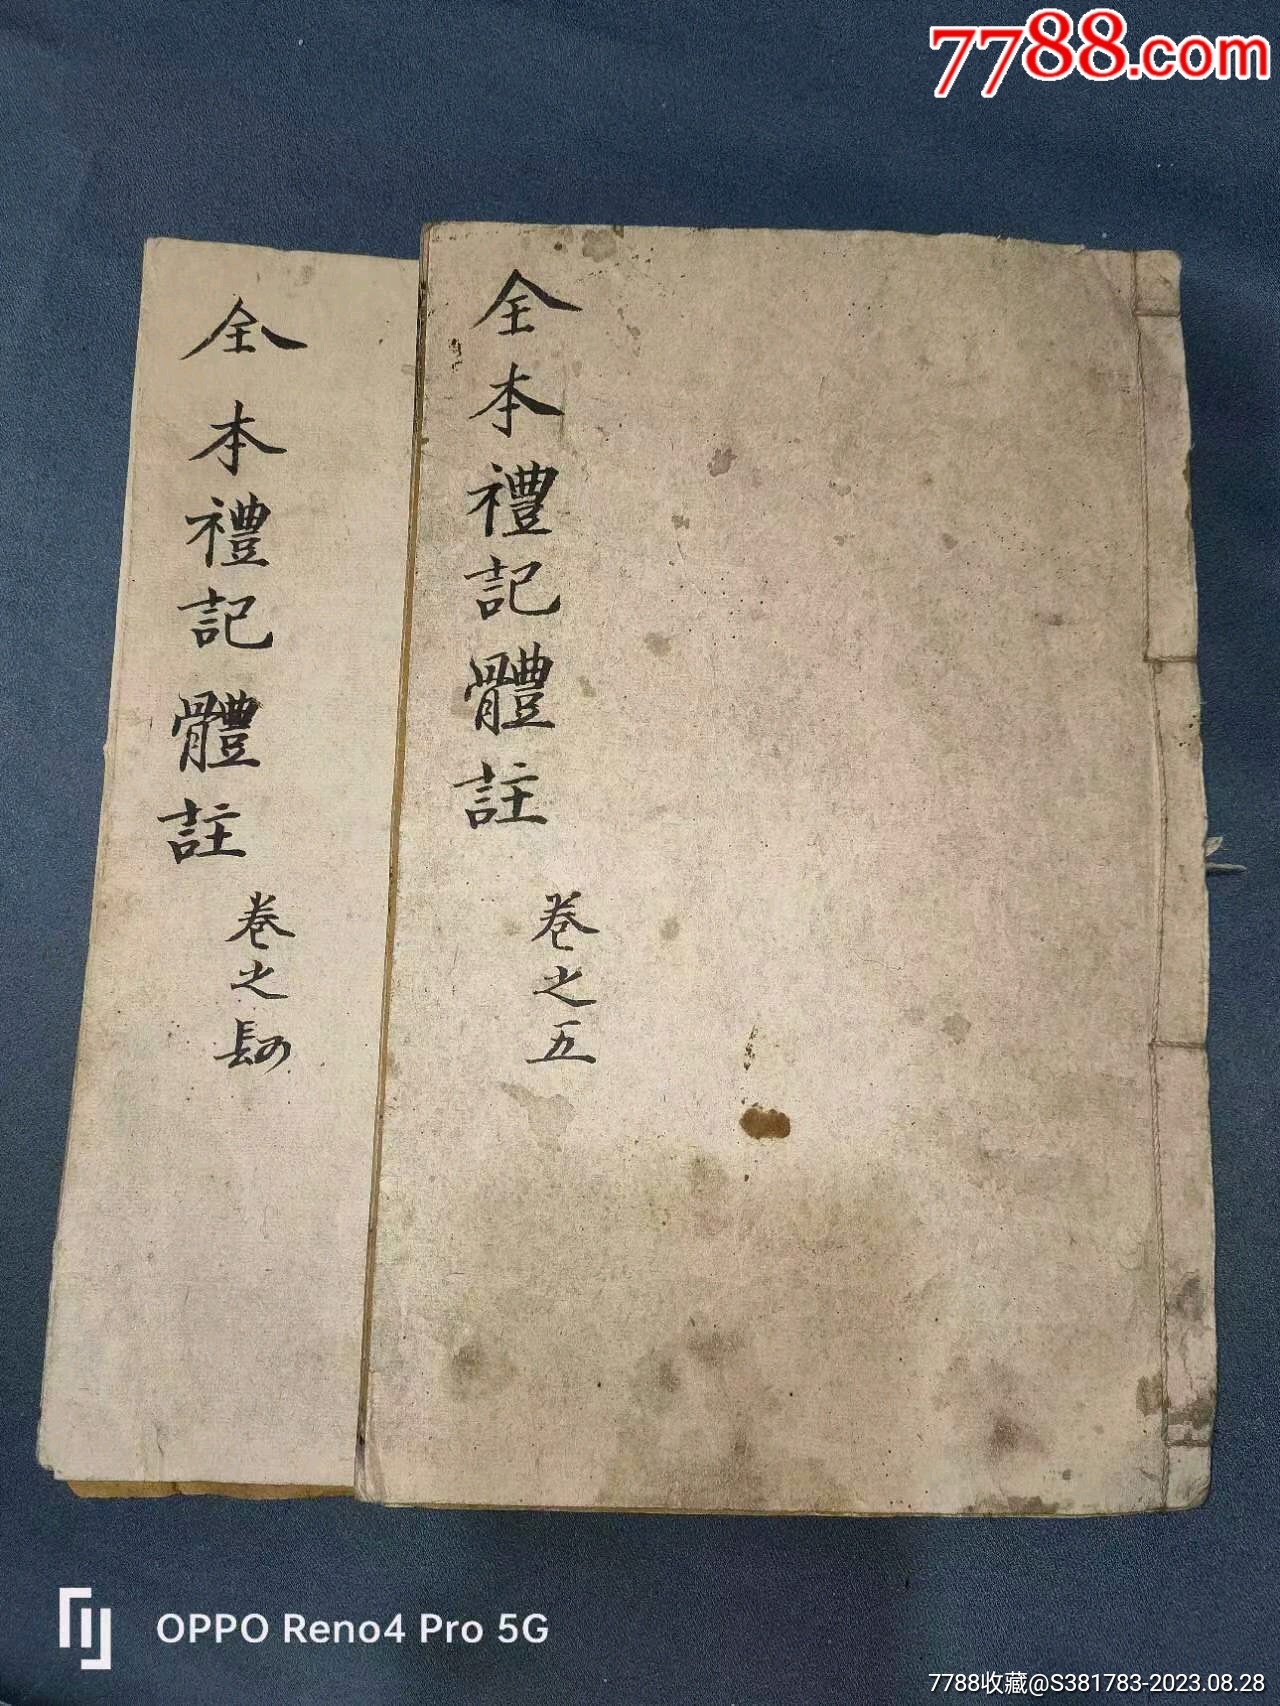 7788.com
全本禮記體註
卷之五
全本禮記體註
卷之肆
OPPO Reno4 Pro 5G
7788收藏@S381783-2023.08.28